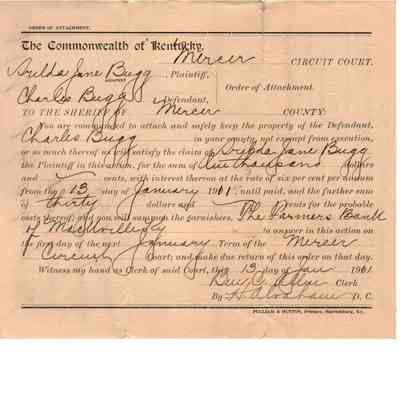 ORDER OF ATTACHMENT.
The Commonwealth of Kentucky,
Mercer CIRCUIT COURT.
Jane Bugg
AGAINST
Plaintiff,
Order of Attachment.
Charles Bugg Defendant,
TO THE SHERIFF OF Mercer COUNTY:
You are commanded to attach and safely keep the property of the Defendant,
Charles Bugg in your county, not exempt from execution,
or so much thereof as will satisfy the claim of Jane Bugg
the Plaintiff in this action, for the sum of thousand dollars
and cents, with interest thereon at the rate of six per cent per annum
from the 13 day of January 1901, until paid, and the further sum
of thirty dollars and cents for the probable
costs thereof; and you will summon the garnishees, The Farmers Bank
of to answer in this action on
the first day of the next January Term of the Mercer
Circuit Court; and make due return of this order on that day.
Witness my hand as Clerk of said Court, this 13 day of Jan 1901.
Ben C. Allin Clerk
By D. C.
PULLIAM & HUTTON, Printers, Harrodsburg, Ky.